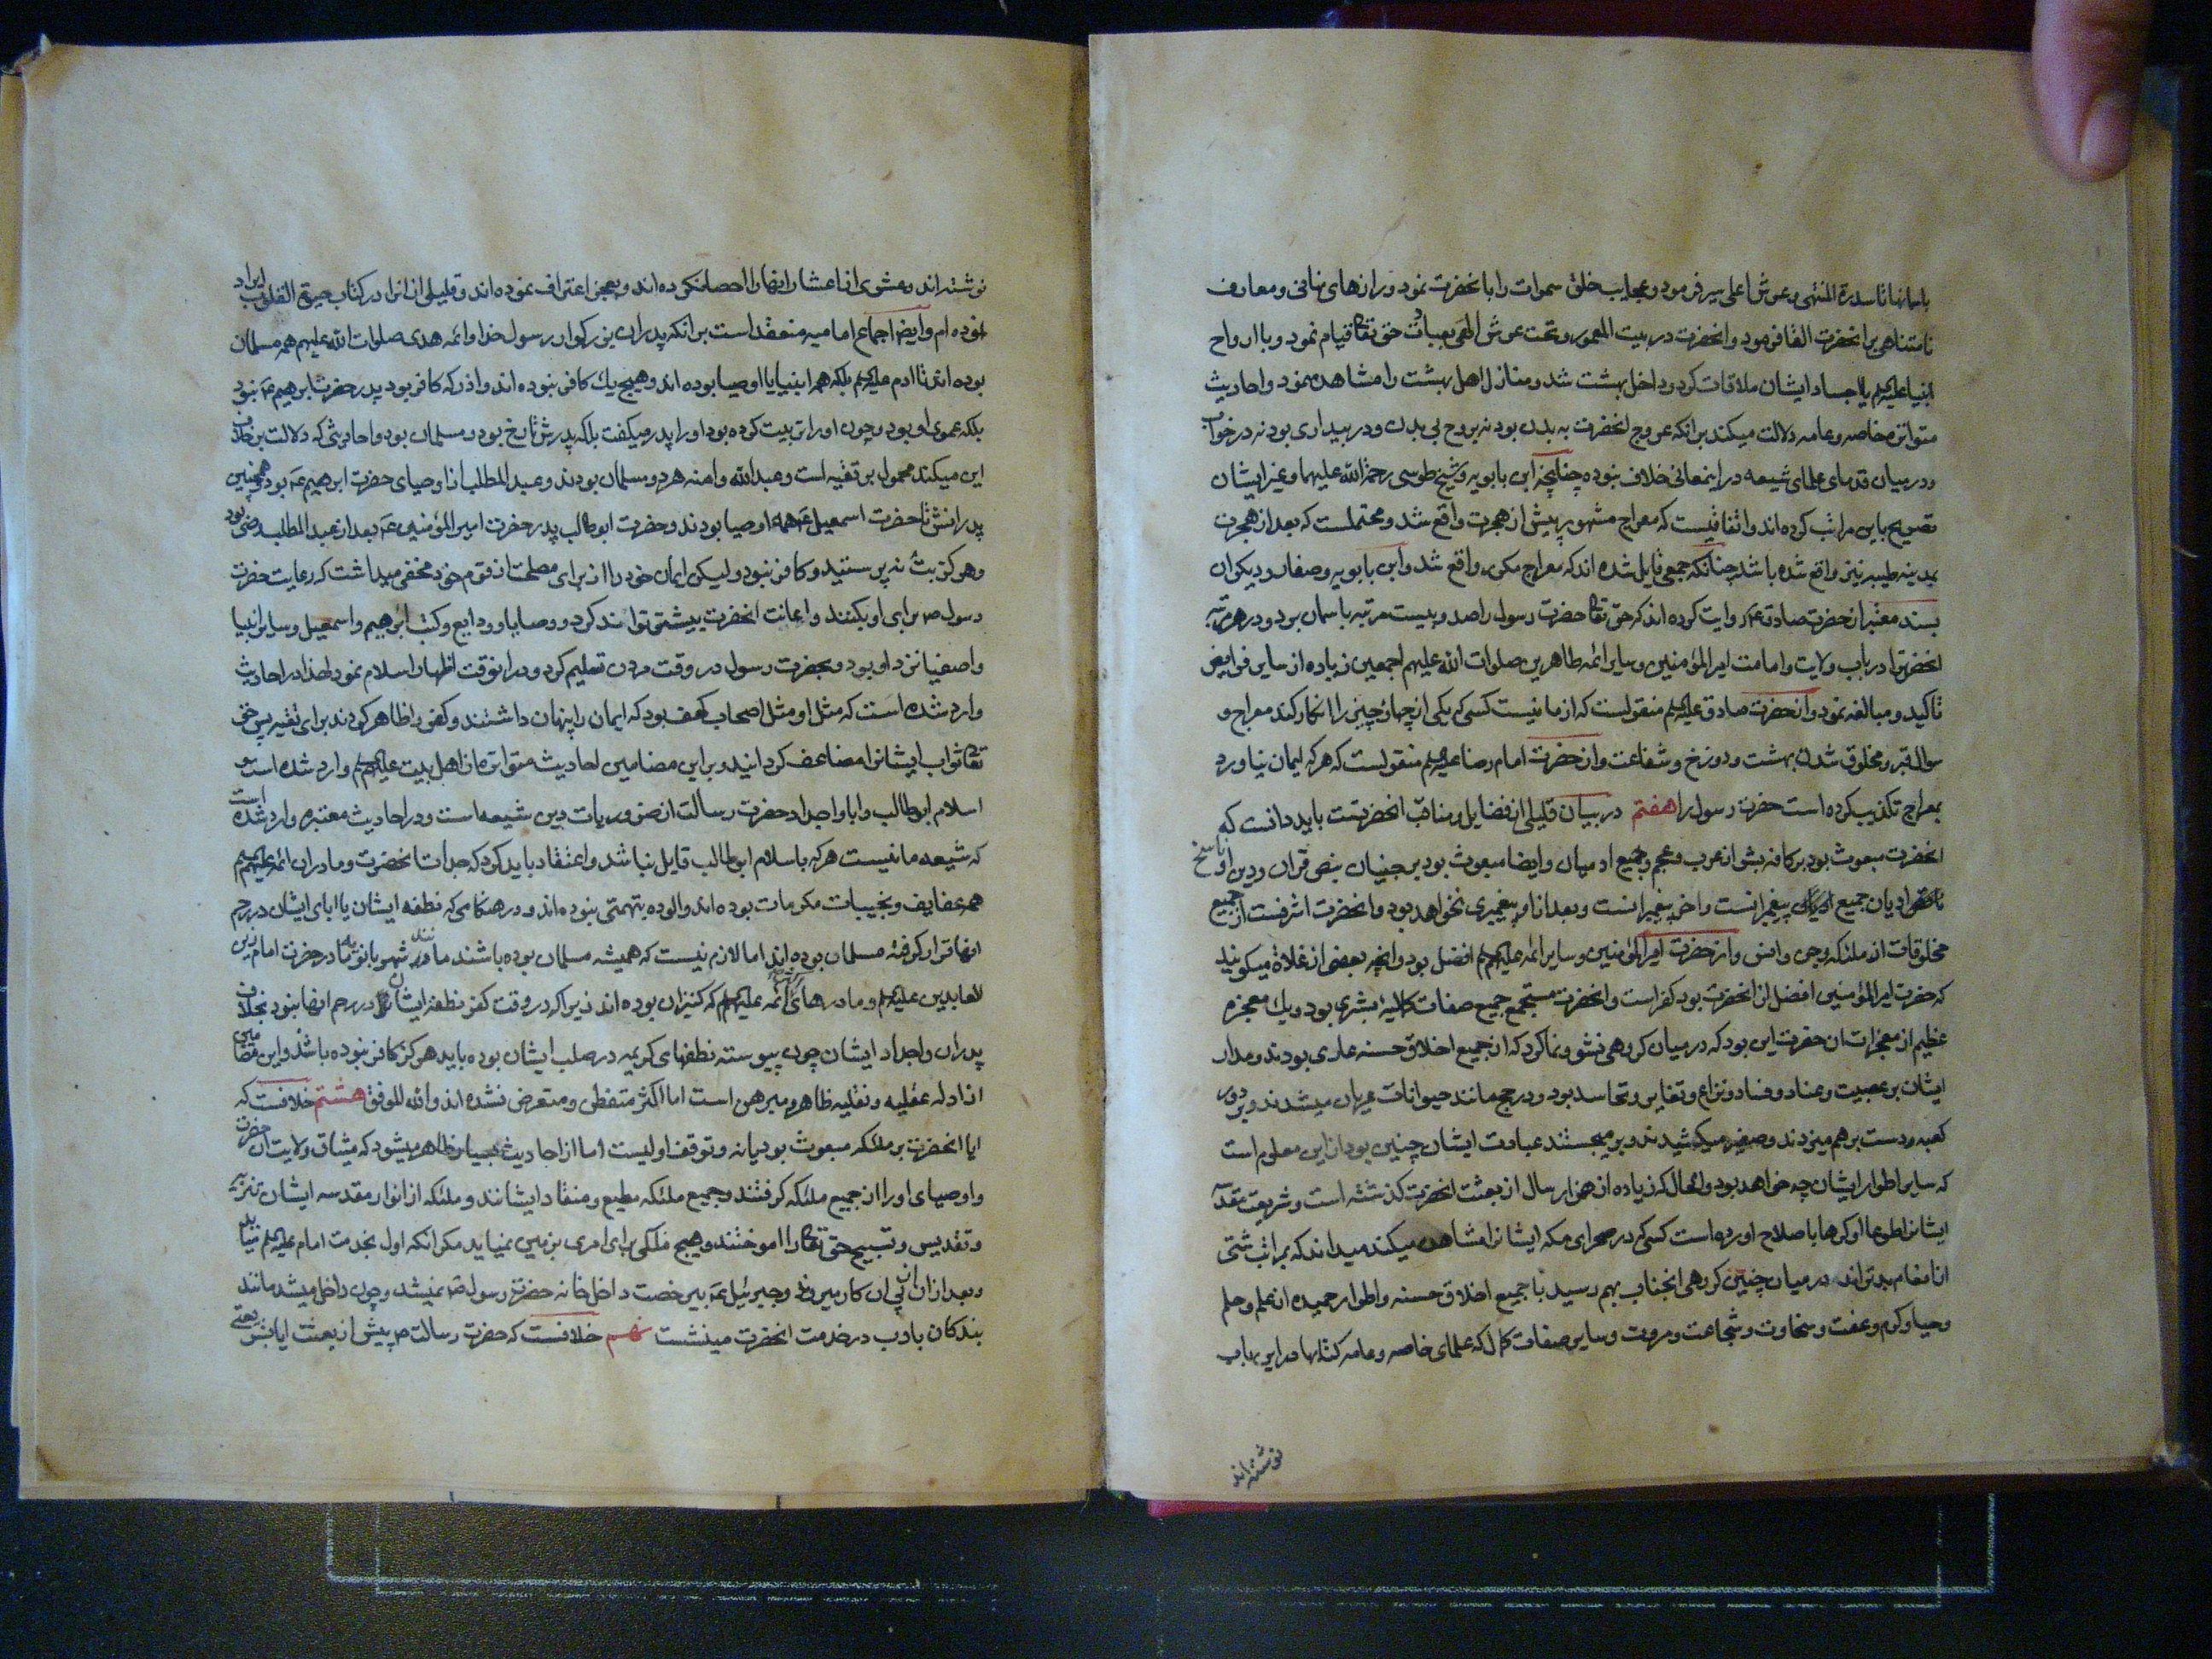 باسمانها تا سدرة المنتهی و عرش اعلی سیر فرمود و عجایب خلق سموات را بانحضرت نمود و رازهای نهانی و معارف
نامتناهی بر انحضرت القا فرمود و انحضرت در بیت المعمور و تحت عرش الهی بعبادت حق تعالی قیام نمود و با ارواح
انبیا علیهم السلم یا اجساد ایشان ملاقات کرد و داخل بهشت شد و منازل اهل بهشت را مشاهده نمود و احادیث
متواتره خاصه و عامه دلالت میکند بر انکه عروج انحضرت به بدن بود نه بروح بی بدن و در بیداری بود نه در خواب
و در میان قدمای علمای شیعه در اینمعانی خلاف نبوده چنانچه ابن بابویه و شیخ طوسی رحمة الله علیهما و غیر ایشان
تصریح باین مراتب کرده اند و اتفاقیست که معراج مشهور پیش از هجرت واقع شد و محتملست که بعد از هجرت
بمدینه طیبه نیز واقع شده باشد چنانکه جمعی قایل شده اند که معراج مکرر واقع شد و ابن بابویه و صفار و دیکران
بسند معتبر از حضرت صادق عم روایت کرده اند که حق تعالی حضرت رسول را صد و بیست مرتبه باسمان برد و در هر مرتبه
انحضرترا در باب ولایت و امامت امیر المؤمنین و سایر ائمه طاهرین صلوات الله علیهم اجمعین زیاده از سایر فرایض
تاکید و مبالغه نمود و از حضرت صادق علیه السلم منقولست که از ما نیست کسی که یکی از چهار چیز را انکار کند معراج و
سوال قبر و مخلوق شدن بهشت و دوزخ و شفاعت و از حضرت امام رضا علیه السلم منقولست که هر که ایمان نیاورد
بمعراج تکذیب کرده است حضرت رسول را هفتم در بیان قلیلی از فضایل و مناقب انحضرتست باید دانست که
انحضرت مبعوث بود بر کافه بشر از عرب و عجم و جمیع ادمیان و ایضا مبعوث بود بر جنیان بنص قران و دین او ناسخ
ادیان جمیع پیغمبرانست و اخر پیغمبرانست و بعد از او پیغمبری نخواهد بود و انحضرت اشرفست از جمیع
مخلوقات از ملئکه و جن و انس و از حضرت امیر المؤمنین و سایر ائمه علیهم السلم افضل بود و انچه بعضی از غلاة میکویند
که حضرت امیر المؤمنین افضل از انحضرت بود کفر است و انحضرت مستجمع جمیع صفات کمالیه بشری بود و یک معجزه
عظیم از معجزات ان حضرت این بود که در میان کروهی نشو و نما کرد که از جمیع اخلاق حسنه عاری بودند و مدار
ایشان بر عصبیت و عناد و فساد و نزاع و تغایر و تحاسد بود و در حج مانند حیوانات عریان میشدند و بر دور
کعبه دست بر هم میزدند و صفیر میکشیدند و بر میجستند عبادت ایشان چنین بود از این معلوم است
که سایر اطوار ایشان چه خواهد بود و الحال که زیاده از هزار سال از بعثت انحضرت کذشته است و شریعت مقدسه
ایشانرا طوعا او کرها باصلاح اورده است کسی که در صحرای مکه ایشانرا مشاهده میکند میداند که بمراتب شتی
از انعام بدتراند در میان چنین کروهی انجناب بهم رسید با جمیع اخلاق حسنه و اطوار حمیده از علم و حلم
و حیا و کرم و عفت و سخاوت و شجاعت و مروت و سایر صفات کمال که علمای خاصه و عامه کتابها در این باب
نوشته اند
نوشته اند و عشری از اعشار انها را احصا نکرده اند و بعجز اعتراف نموده اند و قلیلی از انرا در کتاب حیوة القلوب ایراد
نموده ام و ایضا اجماع امامیه منعقد است بر انکه پدران بزرکوار رسول خدا و ائمه هدی صلوات الله علیهم همه مسلمان
بوده اند تا ادم علیه السلم بلکه همه انبیا یا اوصیا بوده اند و هیچ یک کافر نبوده اند و اذر که کافر بود پدر حضرت ابرهیم عم نبود
بلکه عموی او بود و چون او را تربیت کرده بود او را پدر میکفت بلکه پدرش تارخ بود و مسلمان بود و احادیثی که دلالت بر خلاف
این میکند محمول بر تقیه است و عبد الله و امنه هر دو مسلمان بودند و عبد المطلب از اوصیای حضرت ابرهیم عم بود و همچنین
پدرانش تا حضرت اسمعیل عم همه اوصیا بودند و حضرت ابو طالب پدر حضرت امیر المؤمنین عم بعد از عبد المطلب وصی بود
و هرکز بت نه پرستید و کافر نبود و لیکن ایمان خود را از برای مصلحت از قوم خود مخفی میداشت که رعایت حضرت
رسول ص برای او بکنند و اعانت انحضرت بیشتر تواند کرد و وصایا و ودایع و کتب ابرهیم و اسمعیل و سایر انبیا
و اصفیا نزد او بود و بحضرت رسول در وقت مردن تسلیم کرد و در انوقت اظهار اسلام نمود لهذا در احادیث
وارد شده است که مثل او مثل اصحاب کهف بود که ایمان را پنهان داشتند و کفر را ظاهر کردند برای تقیه پس حق
تعالی ثواب ایشانرا مضاعف کردانید و بر این مضامین احادیث متواتره از اهل بیت علیهم السلم وارد شده است و
اسلام ابو طالب و ابا و اجداد حضرت رسالت از ضروریات دین شیعه است و در احادیث معتبره وارد شده است
که شیعه ما نیست هر که باسلام ابو طالب قایل نباشد و اعتقاد باید کرد که جدات انحضرت و مادران ائمه علیهم السلم
همه عفایف و نجیبات مکرمات بوده اند و الوده بتهمتی نبوده اند و در هنکامی که نطفه ایشان یا ابای ایشان در رحم
انها قرار کرفته مسلمان بوده اند اما لازم نیست که همیشه مسلمان بوده باشند مانند شهربانویه مادر حضرت امام زین
العابدین علیه السلم و مادرهای ائمه علیهم السلم که کنیزان بوده اند زیرا که در وقت کفر نطفه ایشان در رحم انها نبود بخلاف
پدران و اجداد ایشان چون پیوسته نطفهای کریمه در صلب ایشان بوده باید هرکز کافر نبوده باشند و این مضامین
از ادله عقلیه و نقلیه ظاهر و مبرهن است اما اکثر متفطن و متعرض نشده اند و الله الموفق هشتم خلافست که
ایا انحضرت بر ملئکه مبعوث بود یا نه و توقف اولیست اما از احادیث بسیار ظاهر میشود که میثاق ولایت ان حضرت
و اوصیای او را از جمیع ملئکه کرفتند و جمیع ملئکه مطیع و منقاد ایشانند و ملئکه از انوار مقدسه ایشان تنزیه
و تقدیس و تسبیح حق تعالی را اموختند و هیچ ملکی برای امری بزمین نمیاید مکر انکه اول بخدمت امام علیه السلم بیاید
و بعد از ان پی ان کار میرود و جبرئیل عم بی رخصت داخل خانه حضرت رسول ص نمیشد و چون داخل میشد مانند
بندکان بادب در خدمت انحضرت مینشست نهم خلافست که حضرت رسالت ص پیش از بعثت ایا بشریعتی